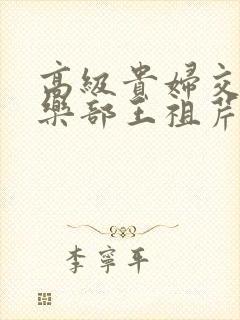 高級貴婦交
樂部王祖芹
李寧平